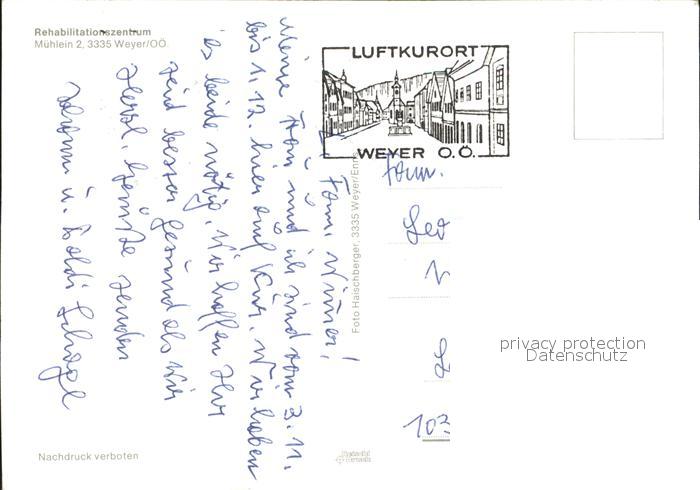 Rehabilitationszentrum
Mühlein 2, 3335 Weyer/OÖ.
LUFTKURORT
WEYER O.Ö.
Fam. Wimmer!
Meine Frau und ich sind vom 3.11.
bis 1.12. hier auf Kur. Wir haben
es beide nötig. Wir hoffen Ihr
seid besser gesund als wir
Herzl. Grüße senden
u. Poldi
Foto Haischberger, 3335 Weyer/Enns
Fam.
Leo
103
privacy protection
Datenschutz
Nachdruck verboten